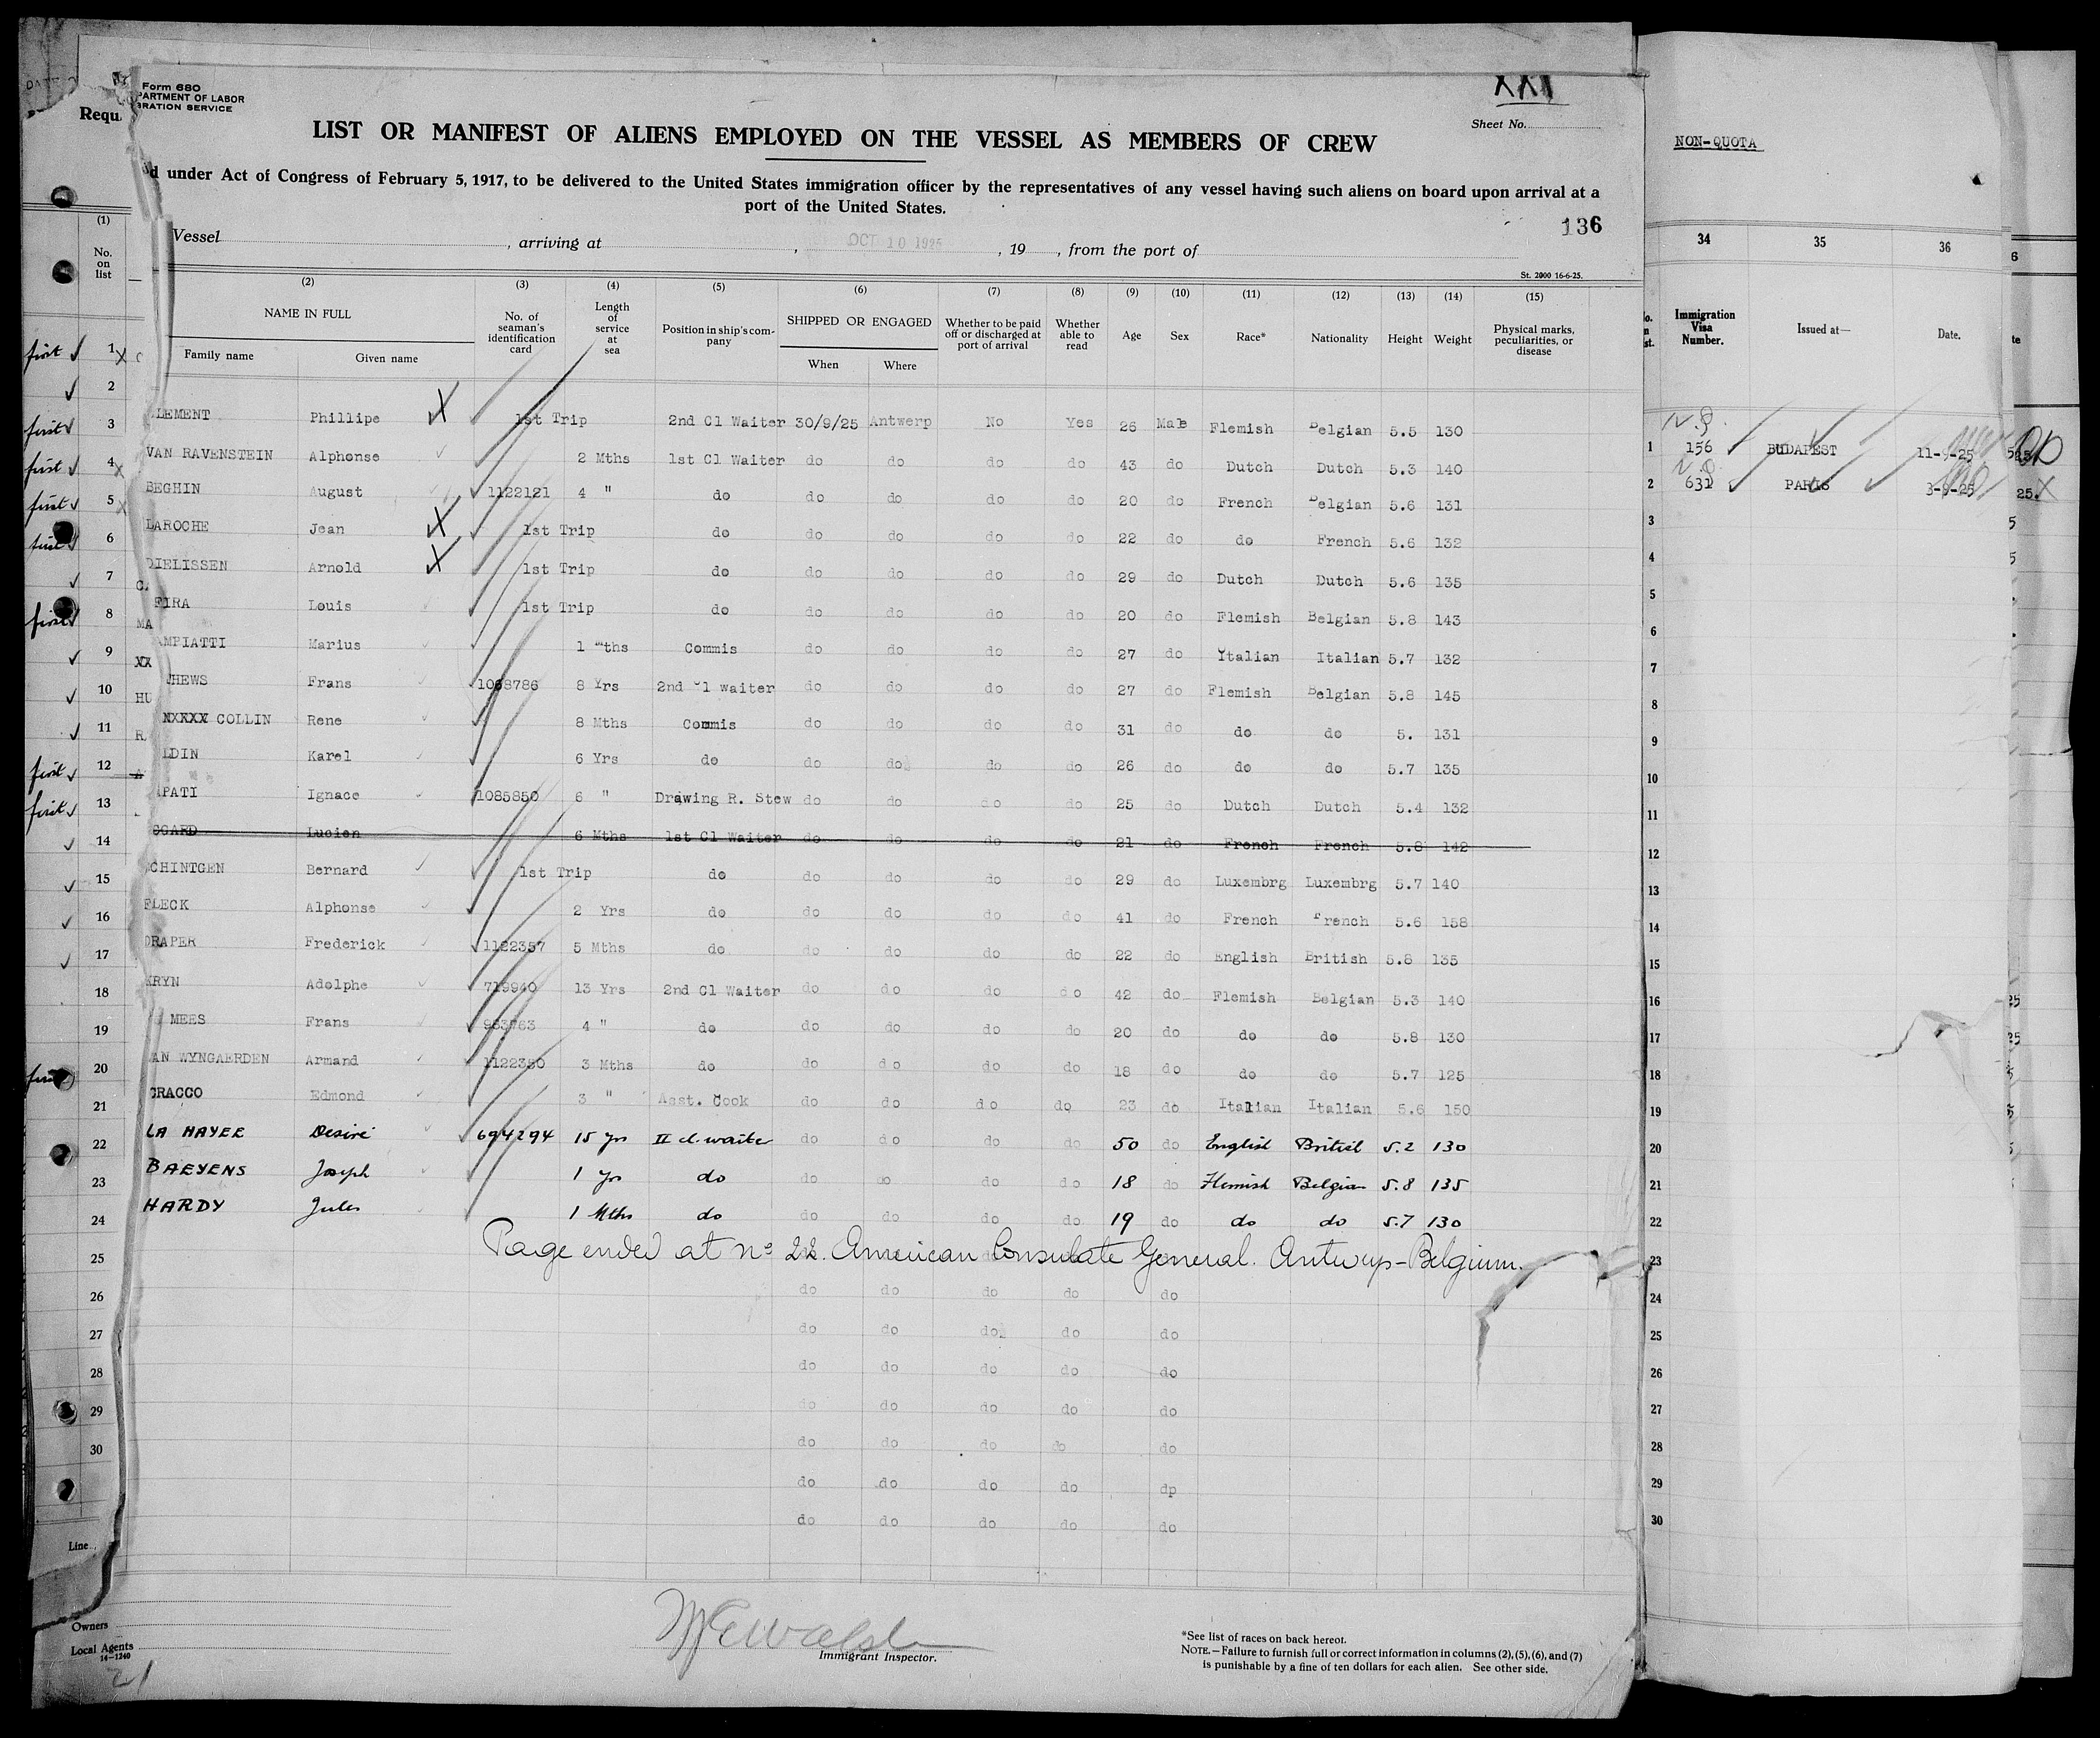 Form 680
LIST OR MANIFEST OF ALIENS EMPLOYED ON THE VESSEL AS MEMBERS OF CREW
XXI
Sheet No.
under Act of Congress of February 5, 1917, to be delivered to the United States immigration officer by the representatives of any vessel having such aliens on board upon arrival at a
port of the United States.
136
Vessel , arriving at , OCT 10 1925 , 19 , from the port of
St. 2000 16-6-25.
(1) No. on list
(2) NAME IN FULL Family name Given name
(3) No. of seaman's identification card
(4) Length of service at sea
(5) Position in ship's company
(6) SHIPPED OR ENGAGED When Where
(7) Whether to be paid off or discharged at port of arrival
(8) Whether able to read
(9) Age
(10) Sex
(11) Race*
(12) Nationality
(13) Height
(14) Weight
(15) Physical marks, peculiarities, or disease
LEMENT Phillipe 1st Trip 2nd Cl Waiter 30/9/25 Antwerp No Yes 26 Male Flemish Belgian 5.5 130
VAN RAVENSTEIN Alphonse 2 Mths 1st Cl Waiter do do do do 43 do Dutch Dutch 5.3 140
BEGHIN August 1122121 4 " do do do do do 20 do French Belgian 5.6 131
LAROCHE Jean 1st Trip do do do do do 22 do do French 5.6 132
DIELISSEN Arnold 1st Trip do do do do do 29 do Dutch Dutch 5.6 135
FIRA Louis 1st Trip do do do do do 20 do Flemish Belgian 5.8 143
MPIATTI Marius 1 mths Commis do do do do 27 do Italian Italian 5.7 132
HEWS Frans 1068786 8 Yrs 2nd Cl waiter do do do do 27 do Flemish Belgian 5.8 145
NXXXX COLLIN Rene 8 Mths Commis do do do do 31 do do do 5. 131
LDIN Karel 6 Yrs do do do do do 26 do do do 5.7 135
PATI Ignace 1085850 6 " Drawing R. Stew do do do do 25 do Dutch Dutch 5.4 132
GGARD Lucien 6 Mths 1st Cl Waiter do do do do 21 do French French 5.8 142
CHINTGEN Bernard 1st Trip do do do do do 29 do Luxembrg Luxembrg 5.7 140
FLECK Alphonse 2 Yrs do do do do do 41 do French French 5.6 158
DRAPER Frederick 1122357 5 Mths do do do do do 22 do English British 5.8 135
KRYN Adolphe 719940 13 Yrs 2nd Cl Waiter do do do do 42 do Flemish Belgian 5.3 140
MEES Frans 983763 4 " do do do do do 20 do do do 5.8 130
AN WYNGAERDEN Armand 1122350 3 Mths do do do do do 18 do do do 5.7 125
GRACCO Edmond 3 " Asst. Cook do do do do 23 do Italian Italian 5.6 150
LA HAYER Desiré 694294 15 yrs II cl. waiter do do do do 50 do English British 5.2 130
BAEYENS Joseph 1 yr do do do do do 18 do Flemish Belgian 5.8 135
HARDY Jules 1 Mths do do do do do 19 do do do 5.7 130
Page ended at nº 22. American Consulate General. Antwerp-Belgium.
do do do do do
do do do do do
do do do do do
do do do do do
do do do do do
do do do do dp
do do do do do
Line
Owners
Local Agents
14-1240
21
Immigrant Inspector.
*See list of races on back hereof.
NOTE.—Failure to furnish full or correct information in columns (2), (5), (6), and (7)
is punishable by a fine of ten dollars for each alien. See other side.
NON-QUOTA
34 35 36
Immigration Visa Number. Issued at— Date.
1 156 BUDAPEST 11-9-25
2 631 PARIS 3-9-25
3
4
5
6
7
8
9
10
11
12
13
14
15
16
17
18
19
20
21
22
23
24
25
26
27
28
29
30